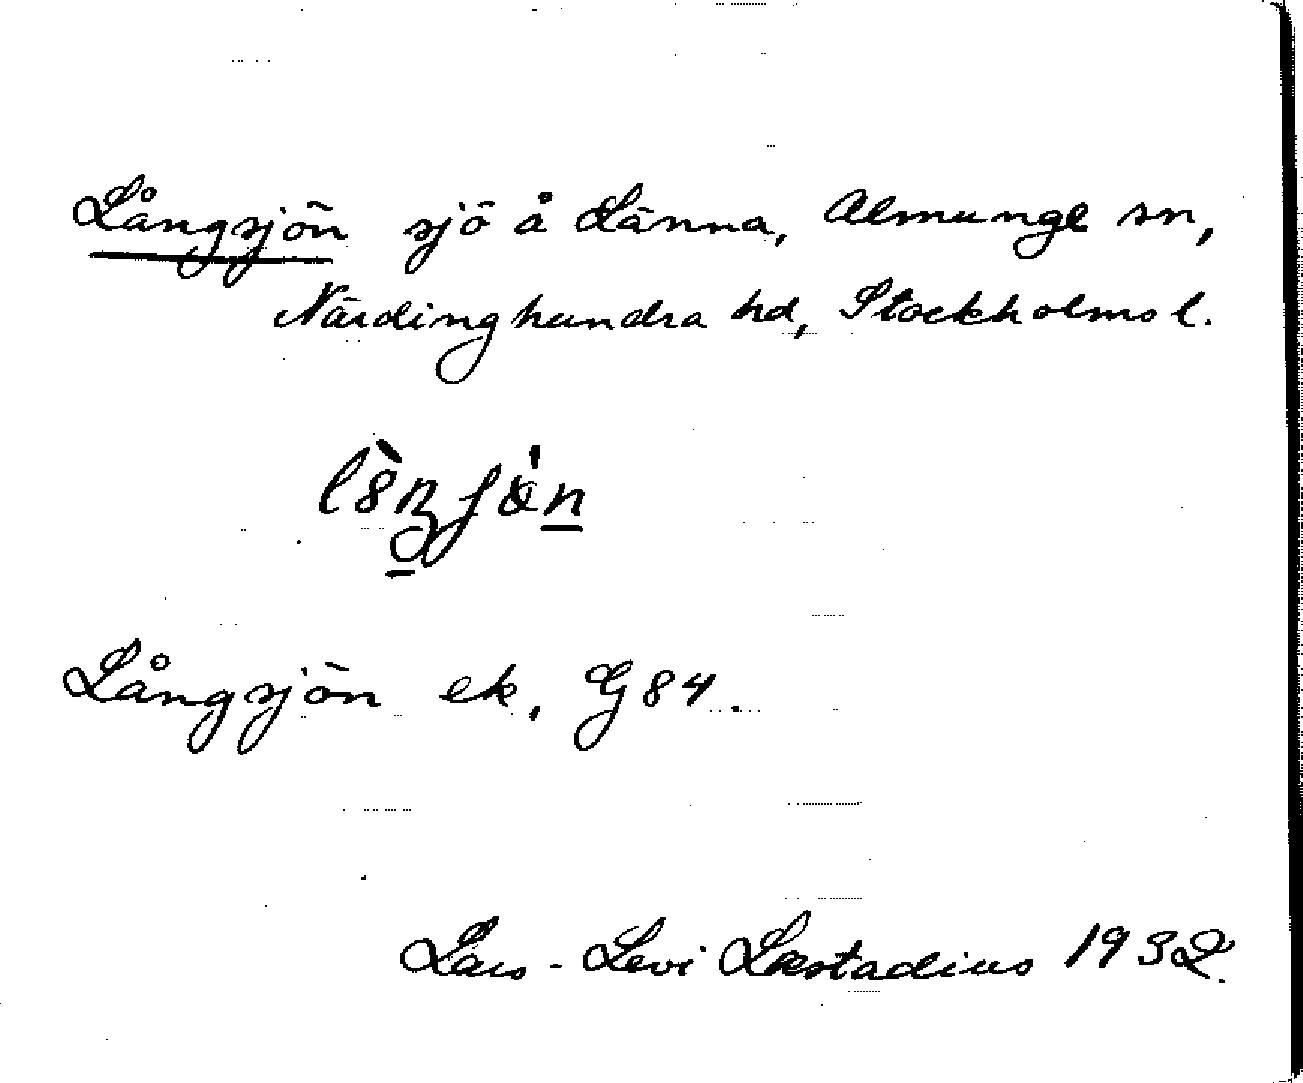 Långsjön sjö å Länna, Almunge sn,
Närdinghundra hd, Stockholms l.
Långsjön ek, G 84.
Lars-Levi Læstadius 1932.